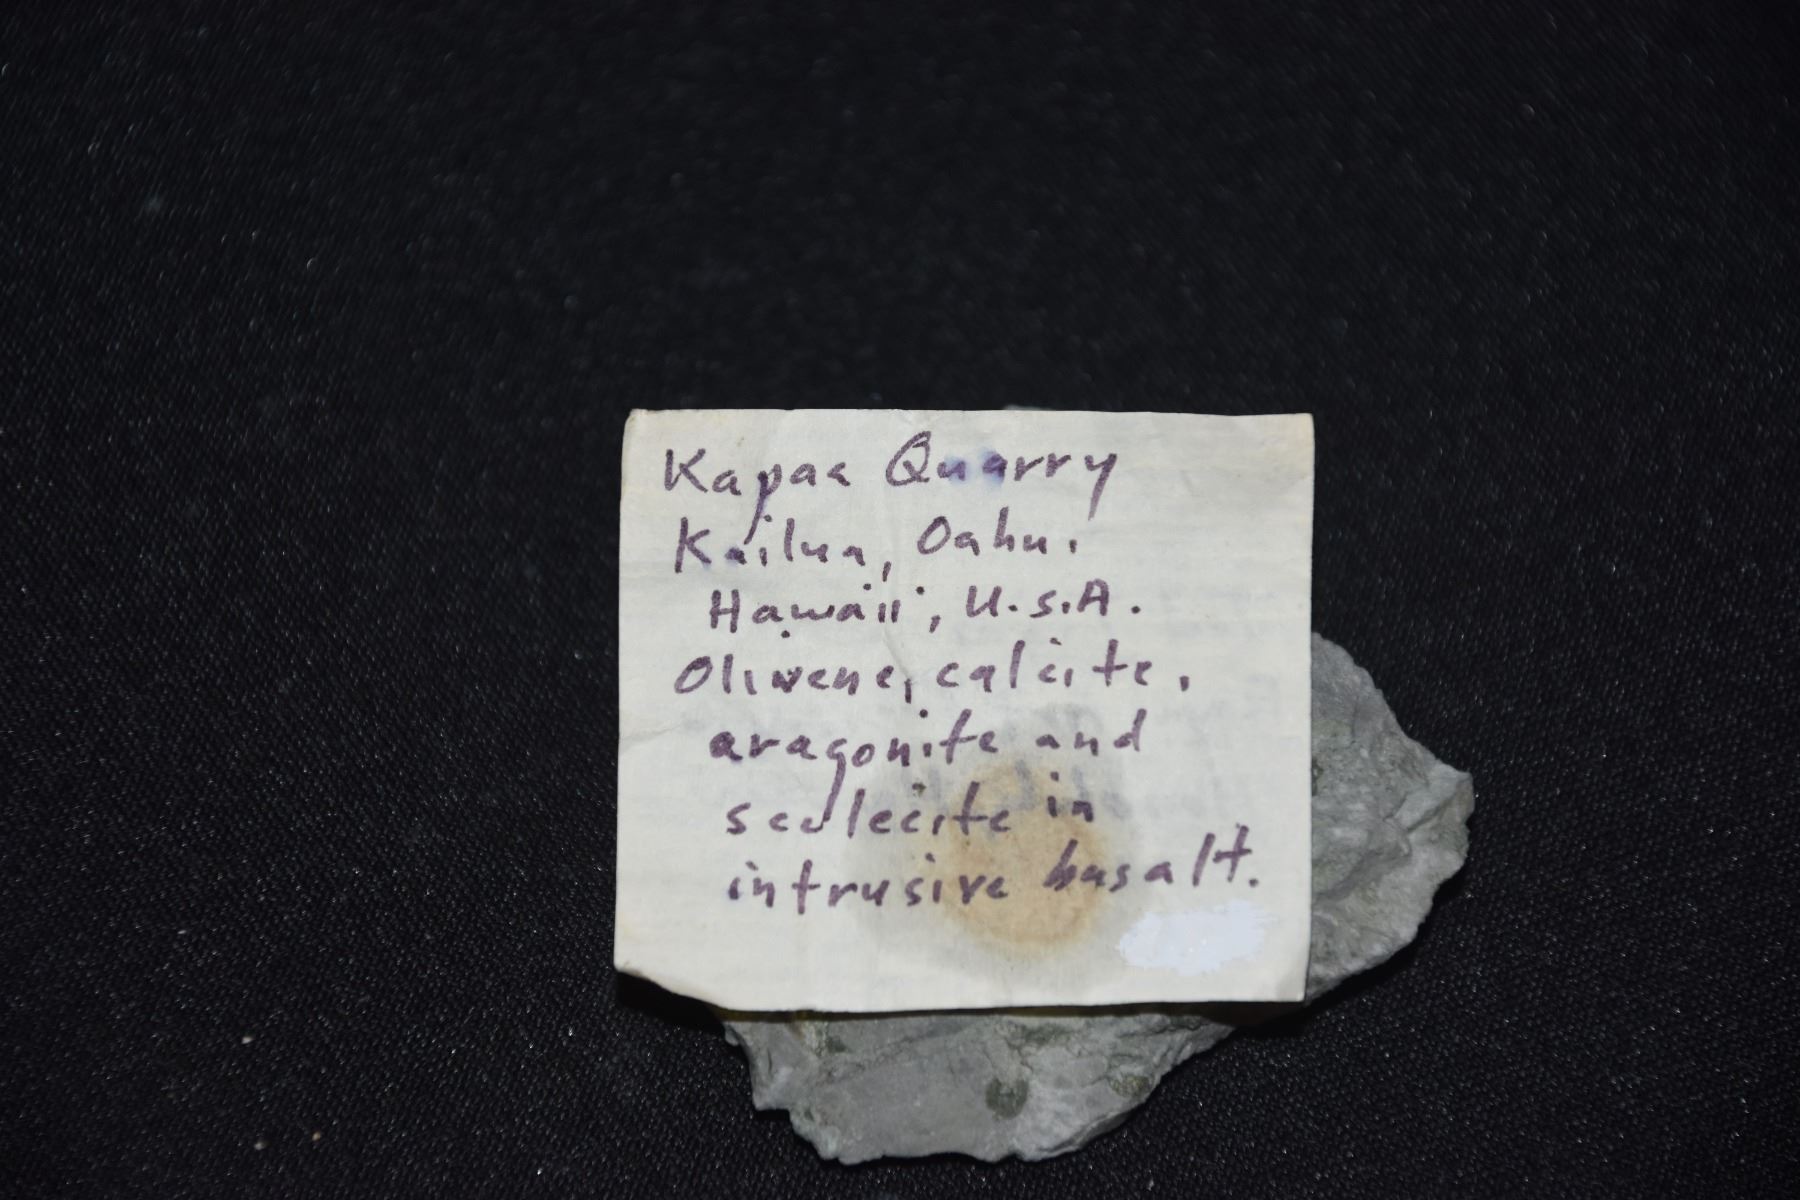 Kapaa Quarry
Kailua, Oahu.
Hawaii, U.S.A.
Olivene, calcite,
aragonite and
scolecite in
intrusive basalt.